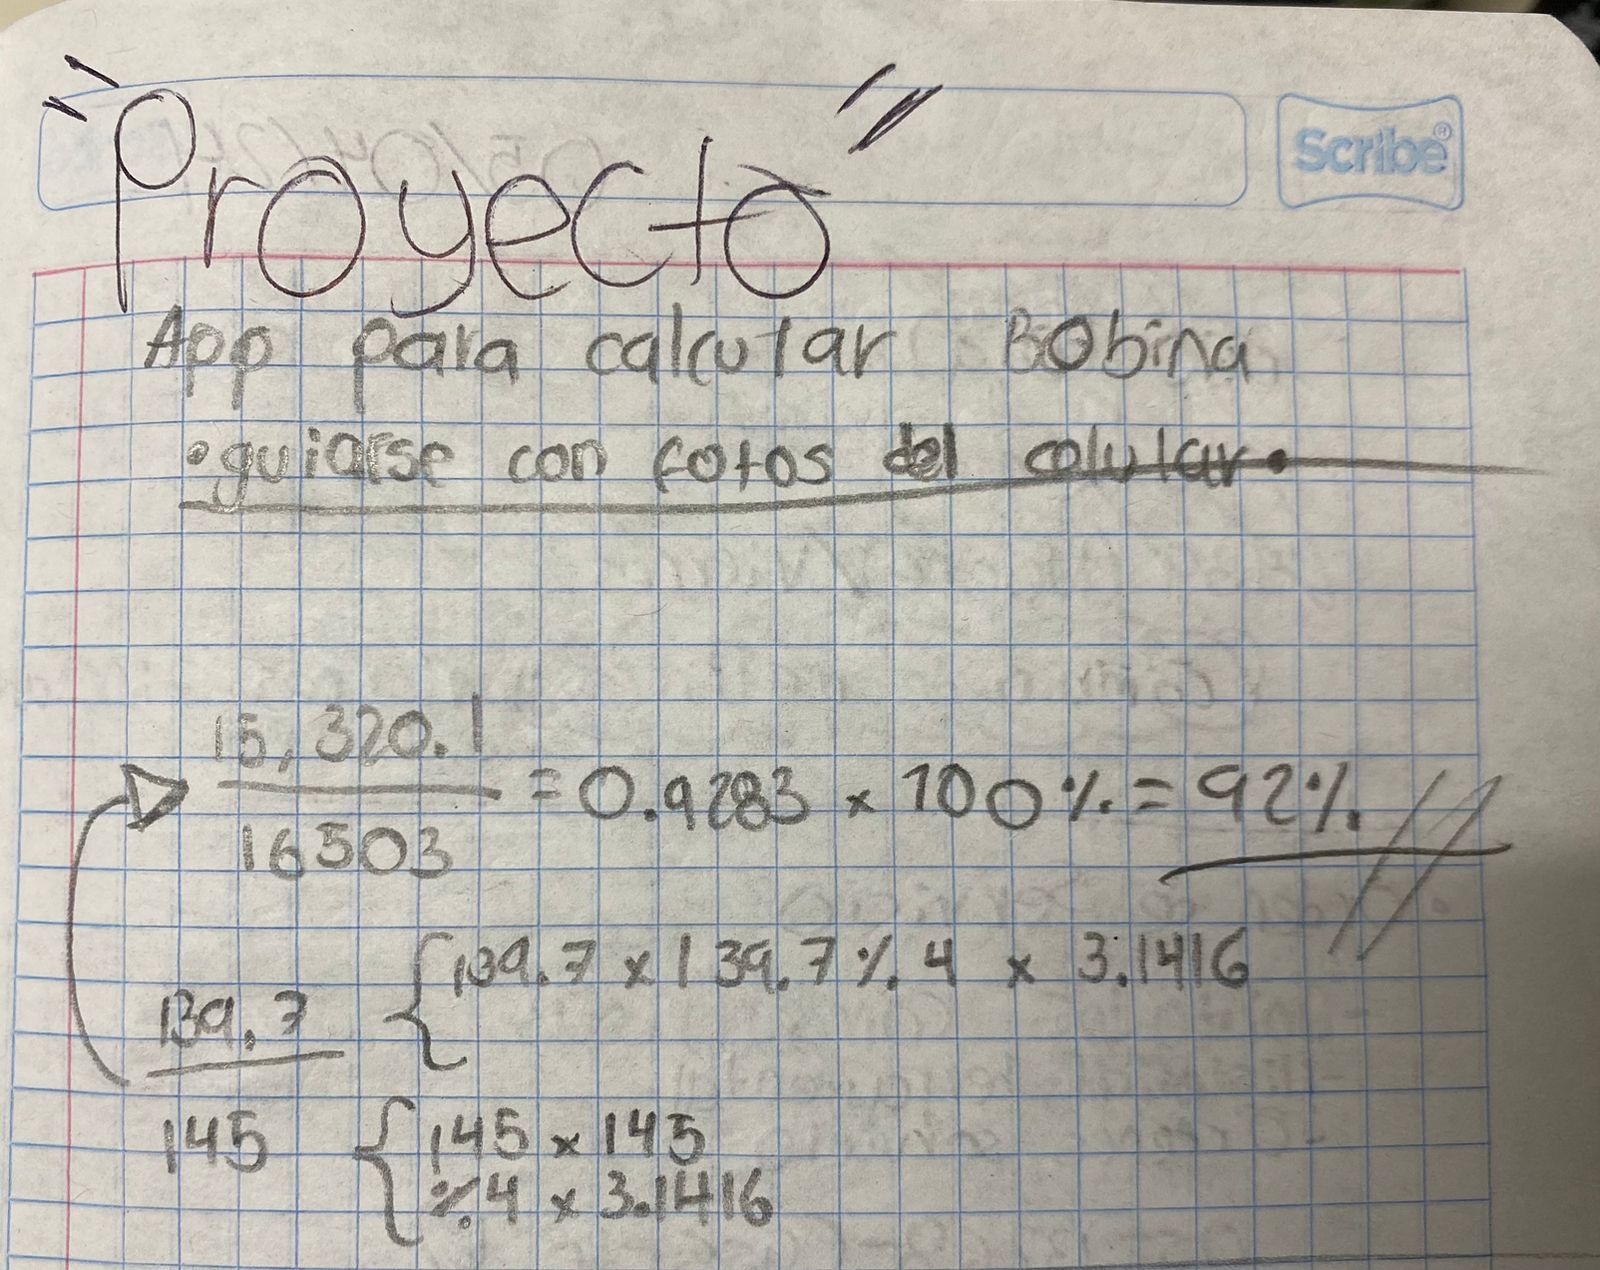 "Proyecto"
Scribe®
App para calcular Bobina
•guiarse con fotos del celular•
15,320.1
16503
= 0.9283 x 100% = 92%
139.7 { 139.7 x 139.7 % 4 x 3.1416
145 { 145 x 145
% 4 x 3.1416